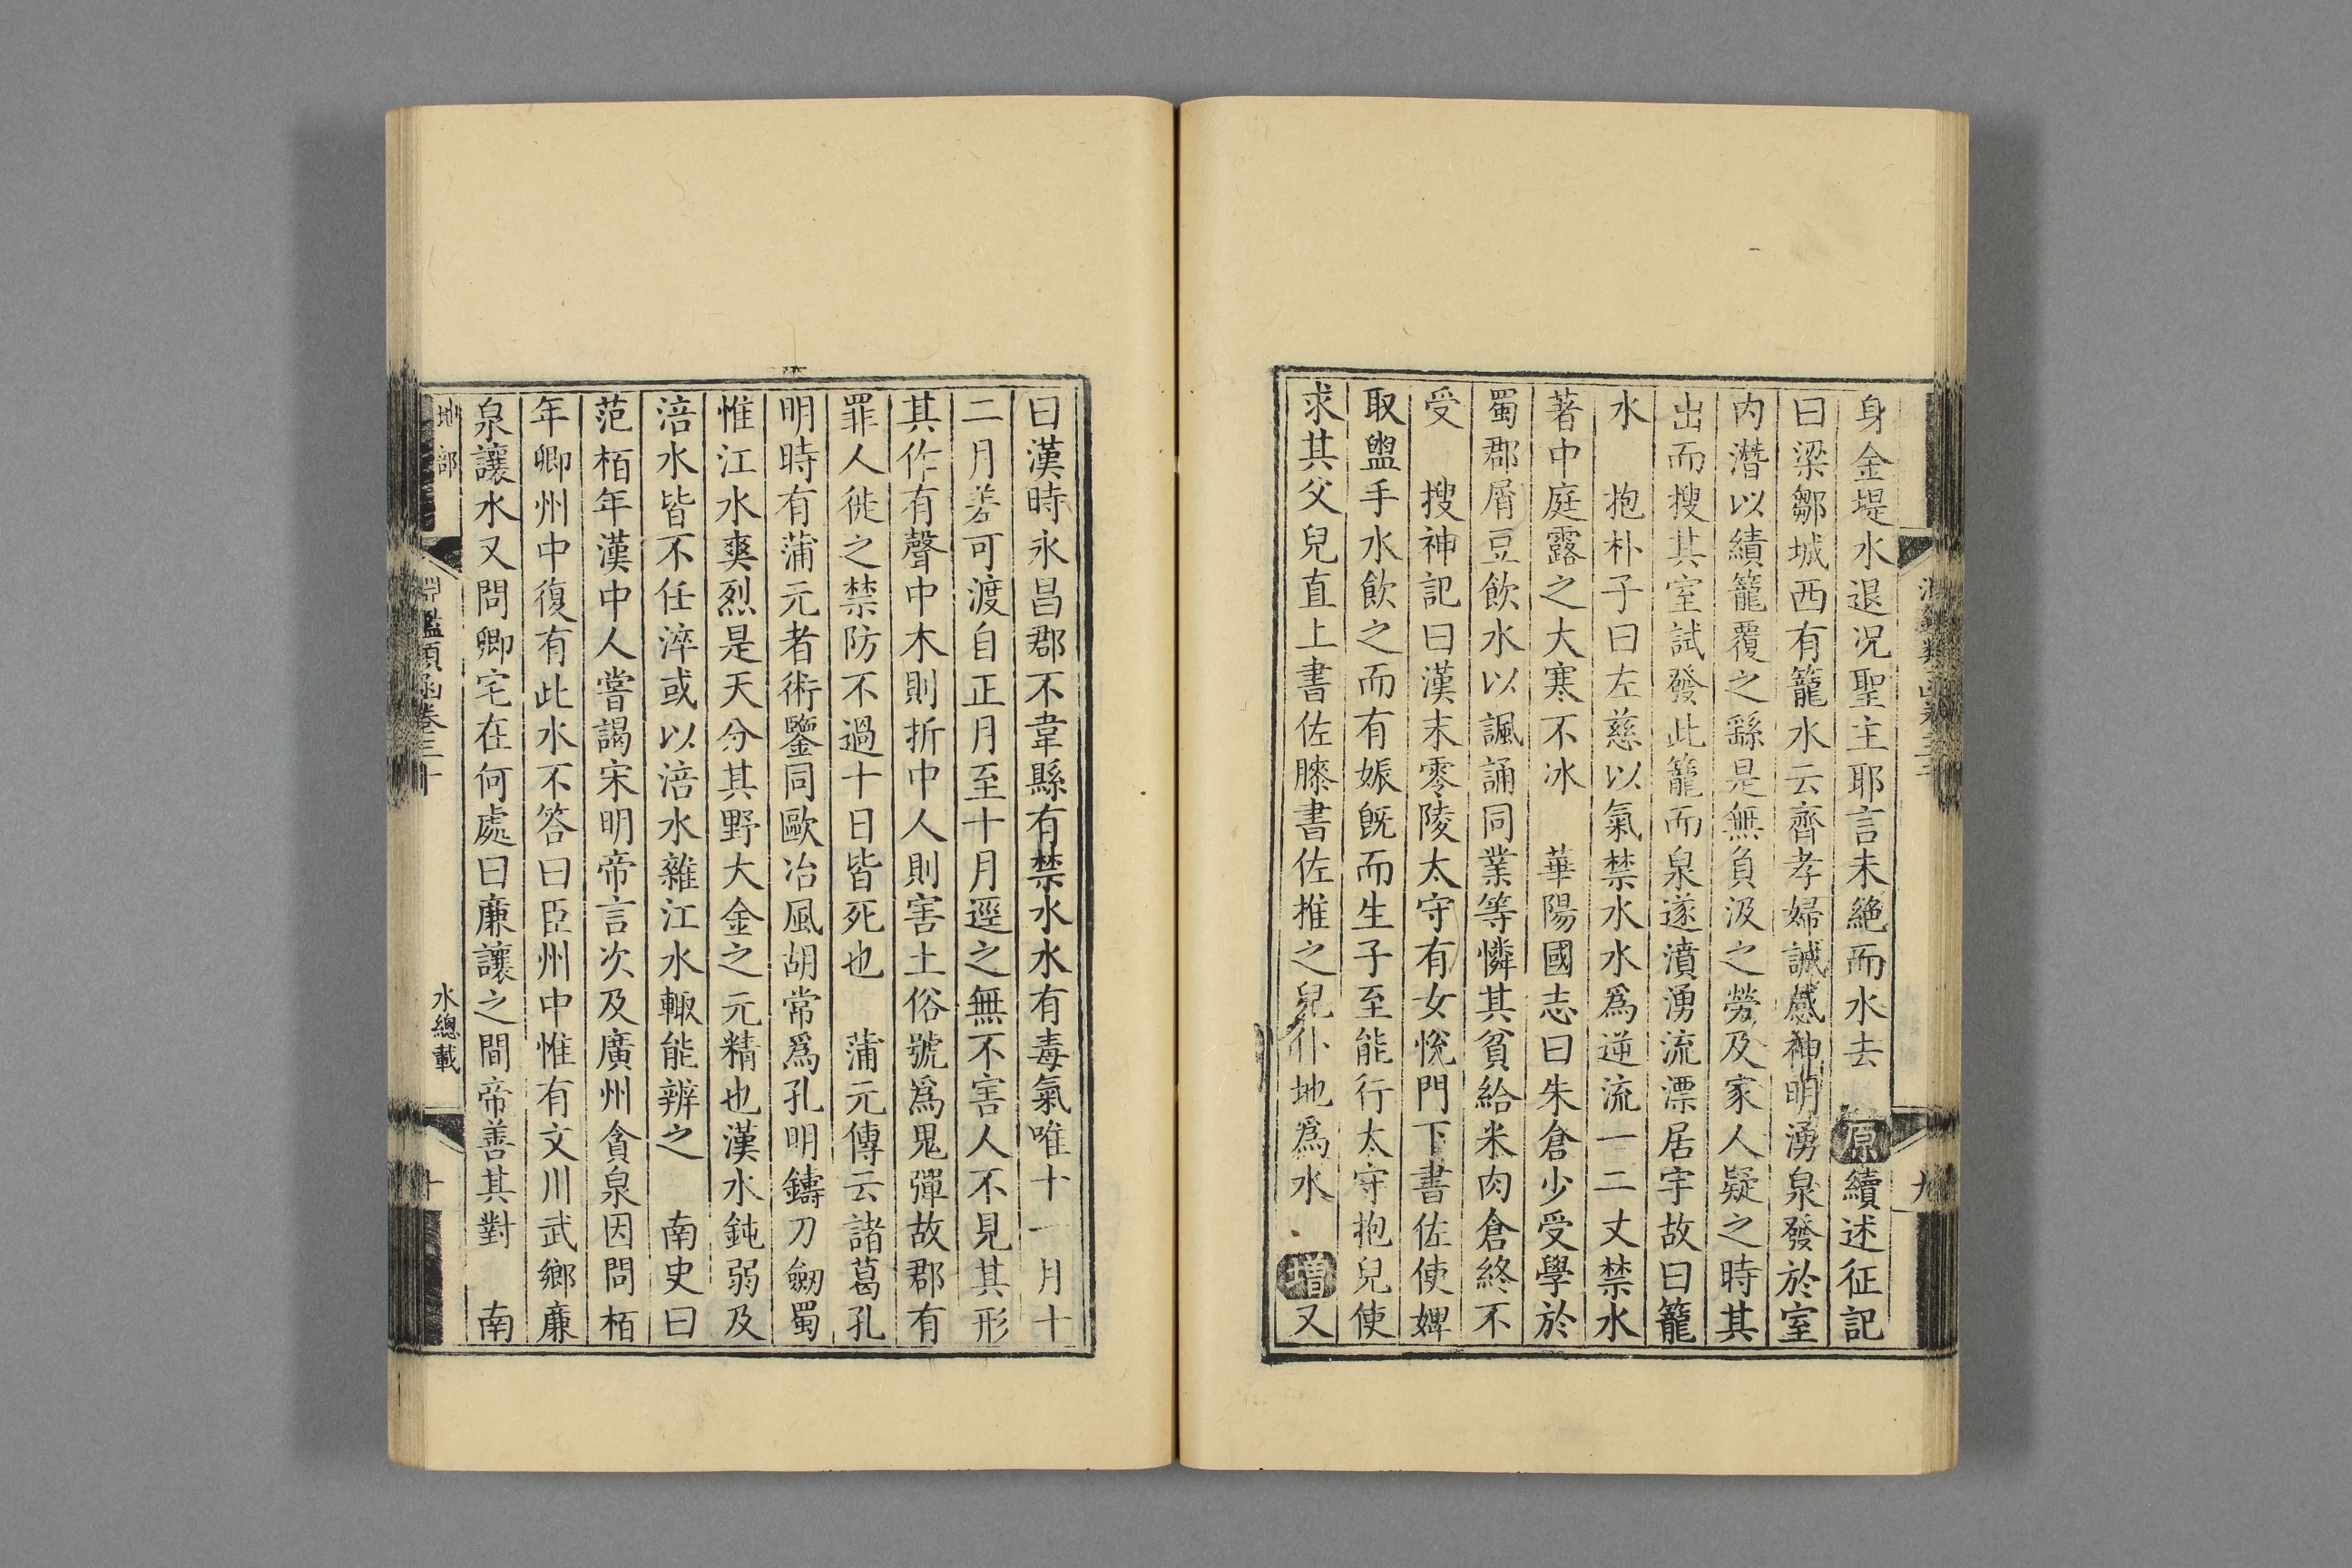 身金堤水退况聖主耶言未絶而水去 原 續述征記
曰梁鄒城西有籠水云齊孝婦誠感神明湧泉發於室
内潛以績籠覆之繇是無負汲之勞及家人疑之時其
出而搜其室試發此籠而泉遂濆湧流漂居宇故曰籠
水 抱朴子曰左慈以氣禁水水爲逆流一二丈禁水
著中庭露之大寒不冰 華陽國志曰朱倉少受學於
蜀郡屑豆飲水以諷誦同業等憐其貧給米肉倉終不
受 搜神記曰漢末零陵太守有女悅門下書佐使婢
取盥手水飲之而有娠既而生子至能行太守抱兒使
求其父兒直上書佐膝書佐推之兒仆地爲水 増 又
曰漢時永昌郡不韋縣有禁水水有毒氣唯十一月十
二月差可渡自正月至十月逕之無不害人不見其形
其作有聲中木則折中人則害土俗號爲鬼彈故郡有
罪人徙之禁防不過十日皆死也 蒲元傳云諸葛孔
明時有蒲元者術鑒同歐冶風胡常爲孔明鑄刀劒蜀
惟江水爽烈是天分其野大金之元精也漢水鈍弱及
涪水皆不任淬或以涪水雜江水輙能辨之 南史曰
范栢年漢中人嘗謁宋明帝言次及廣州貪泉因問栢
年卿州中復有此水不答曰臣州中惟有文川武鄉廉
泉讓水又問卿宅在何處曰廉讓之間帝善其對 南
地部 淵鑑類函卷三十 水總載 十